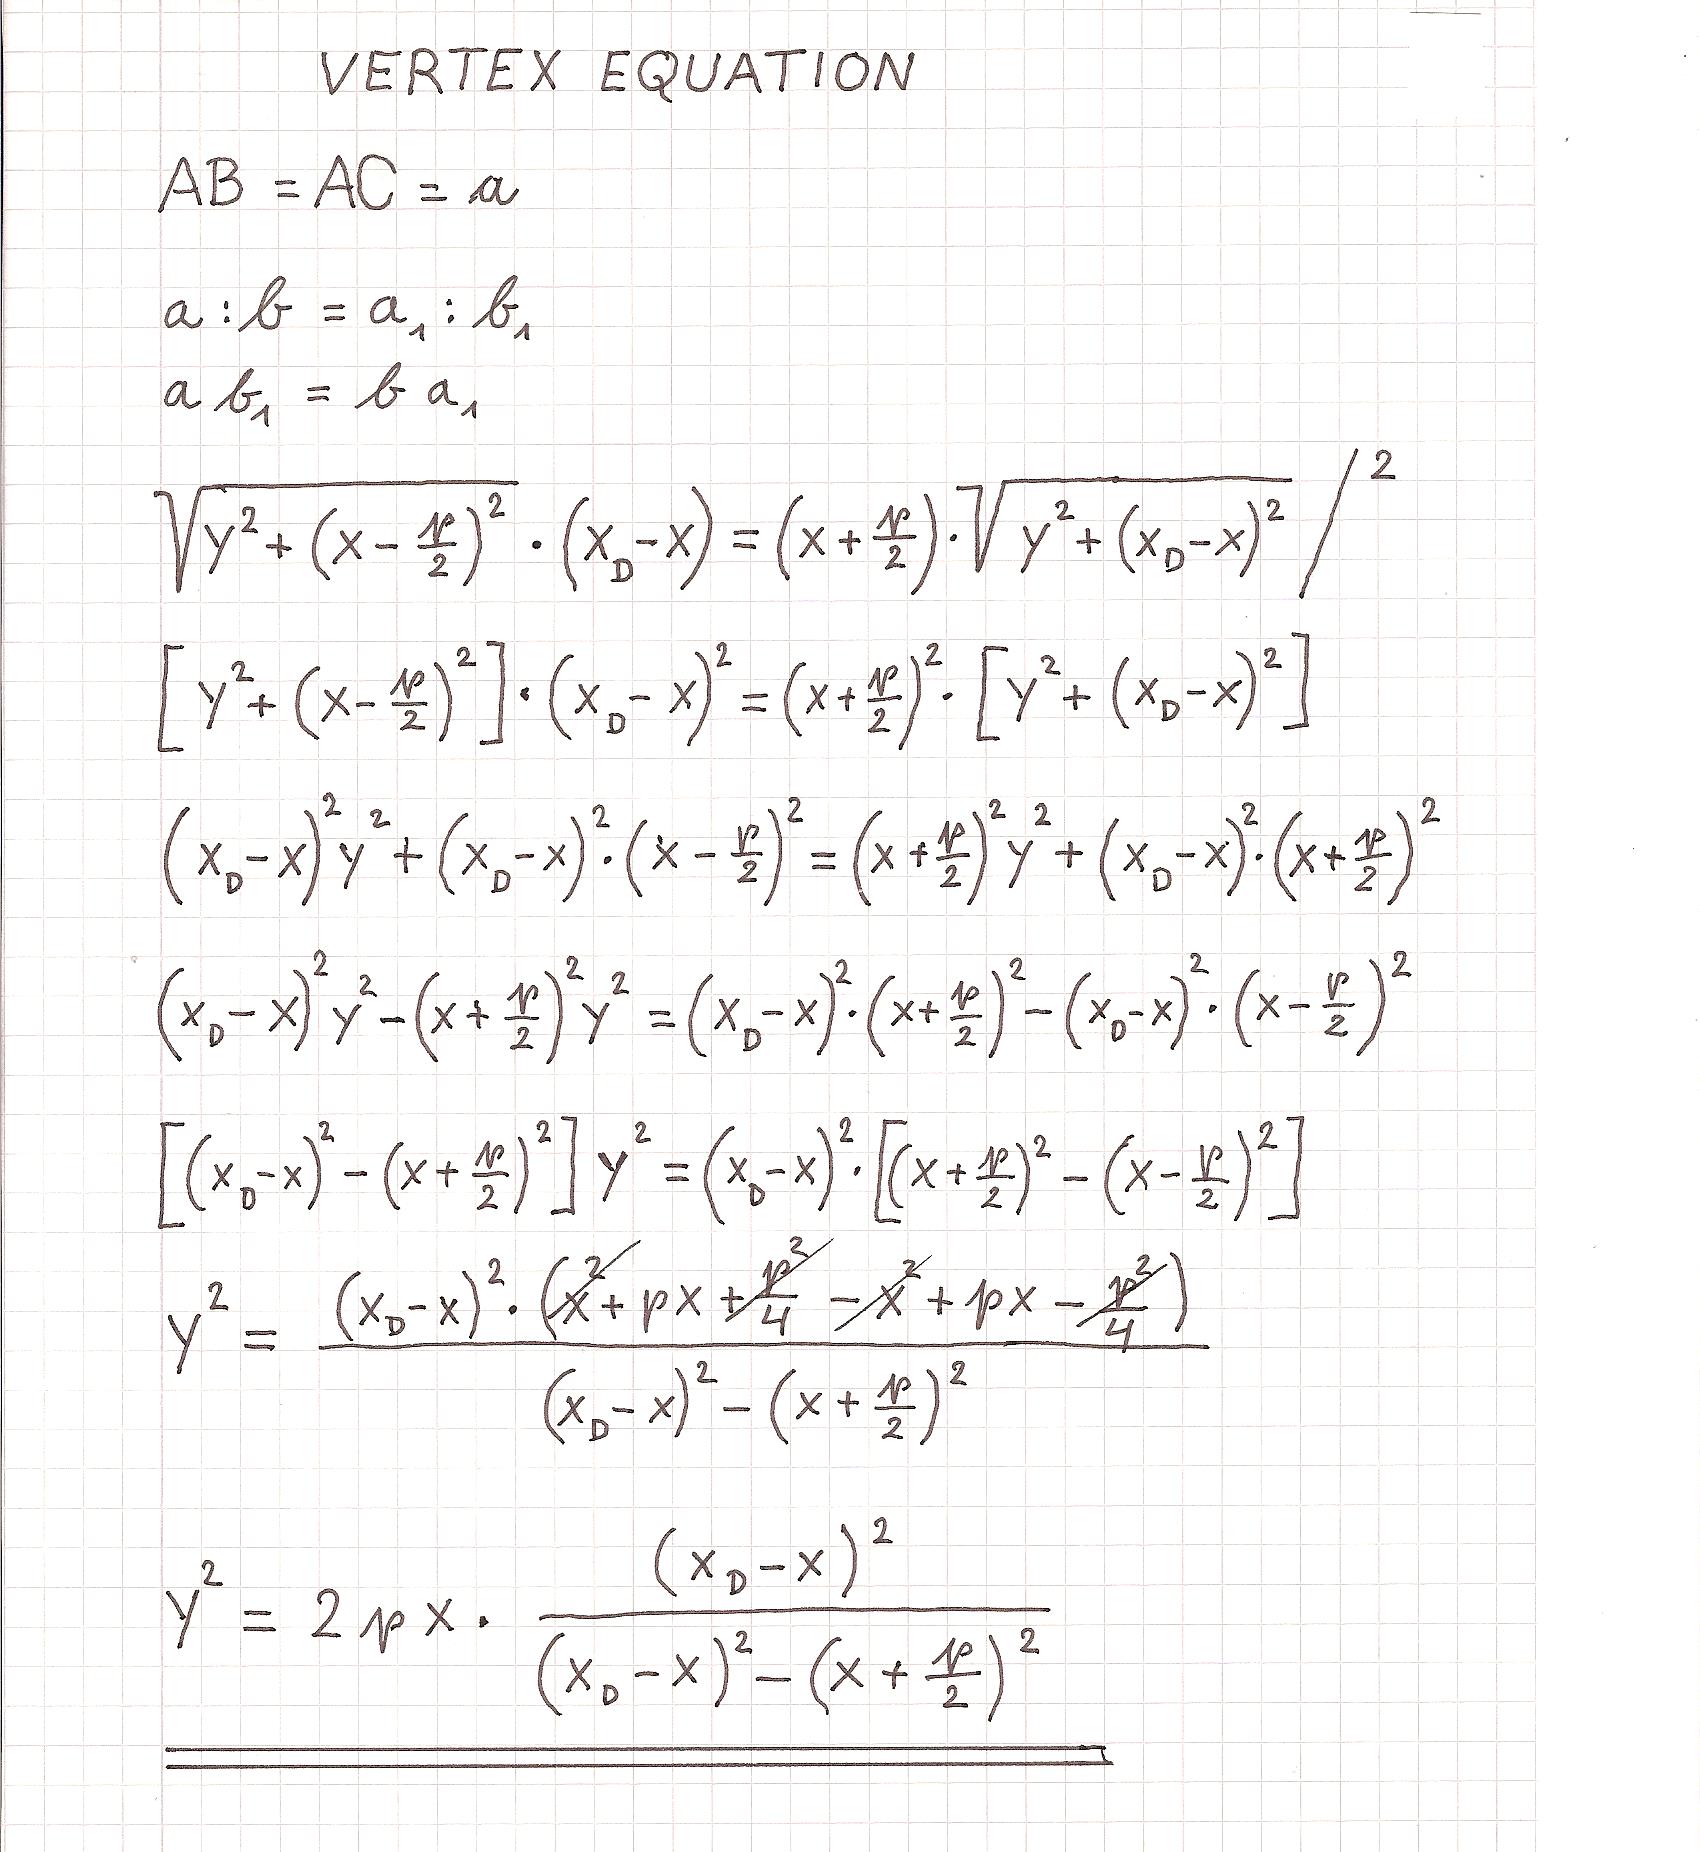 VERTEX EQUATION
AB = AC = a
a : b = a₁ : b₁
a b₁ = b a₁
√(y² + (x - p/2)²) · (x_D - x) = (x + p/2) · √(y² + (x_D - x)²) /²
[y² + (x - p/2)²] · (x_D - x)² = (x + p/2)² · [y² + (x_D - x)²]
(x_D - x)² y² + (x_D - x)² · (x - p/2)² = (x + p/2)² y² + (x_D - x)² · (x + p/2)²
(x_D - x)² y² - (x + p/2)² y² = (x_D - x)² · (x + p/2)² - (x_D - x)² · (x - p/2)²
[(x_D - x)² - (x + p/2)²] y² = (x_D - x)² · [(x + p/2)² - (x - p/2)²]
y² = (x_D - x)² · (x² + px + p²/4 - x² + px - p²/4) / ((x_D - x)² - (x + p/2)²)
y² = 2px · (x_D - x)² / ((x_D - x)² - (x + p/2)²)